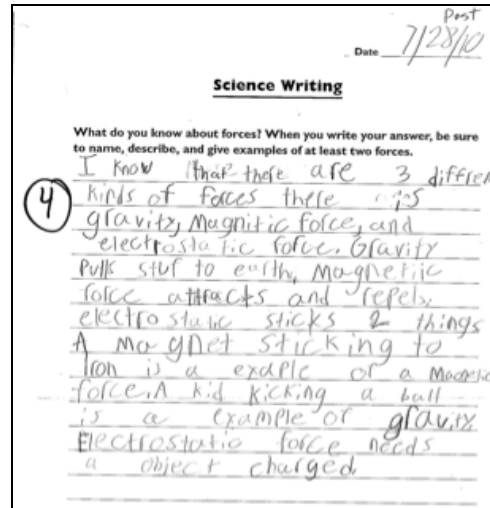 Post
Date 7/28/10
Science Writing
What do you know about forces? When you write your answer, be sure
to name, describe, and give examples of at least two forces.
I know that there are 3 differen
kinds of forces there is
4
gravity, Magnitic force, and
electrostatic force. Gravity
Pulls stuf to earth, Magnetiic
force attracts and repels,
electrostatic sticks 2 things
A magnet sticking to
Iron is a exaple of a Magnetic
force. A kid kicking a ball
is a example of gravity
Electrostatic force needs
a object charged